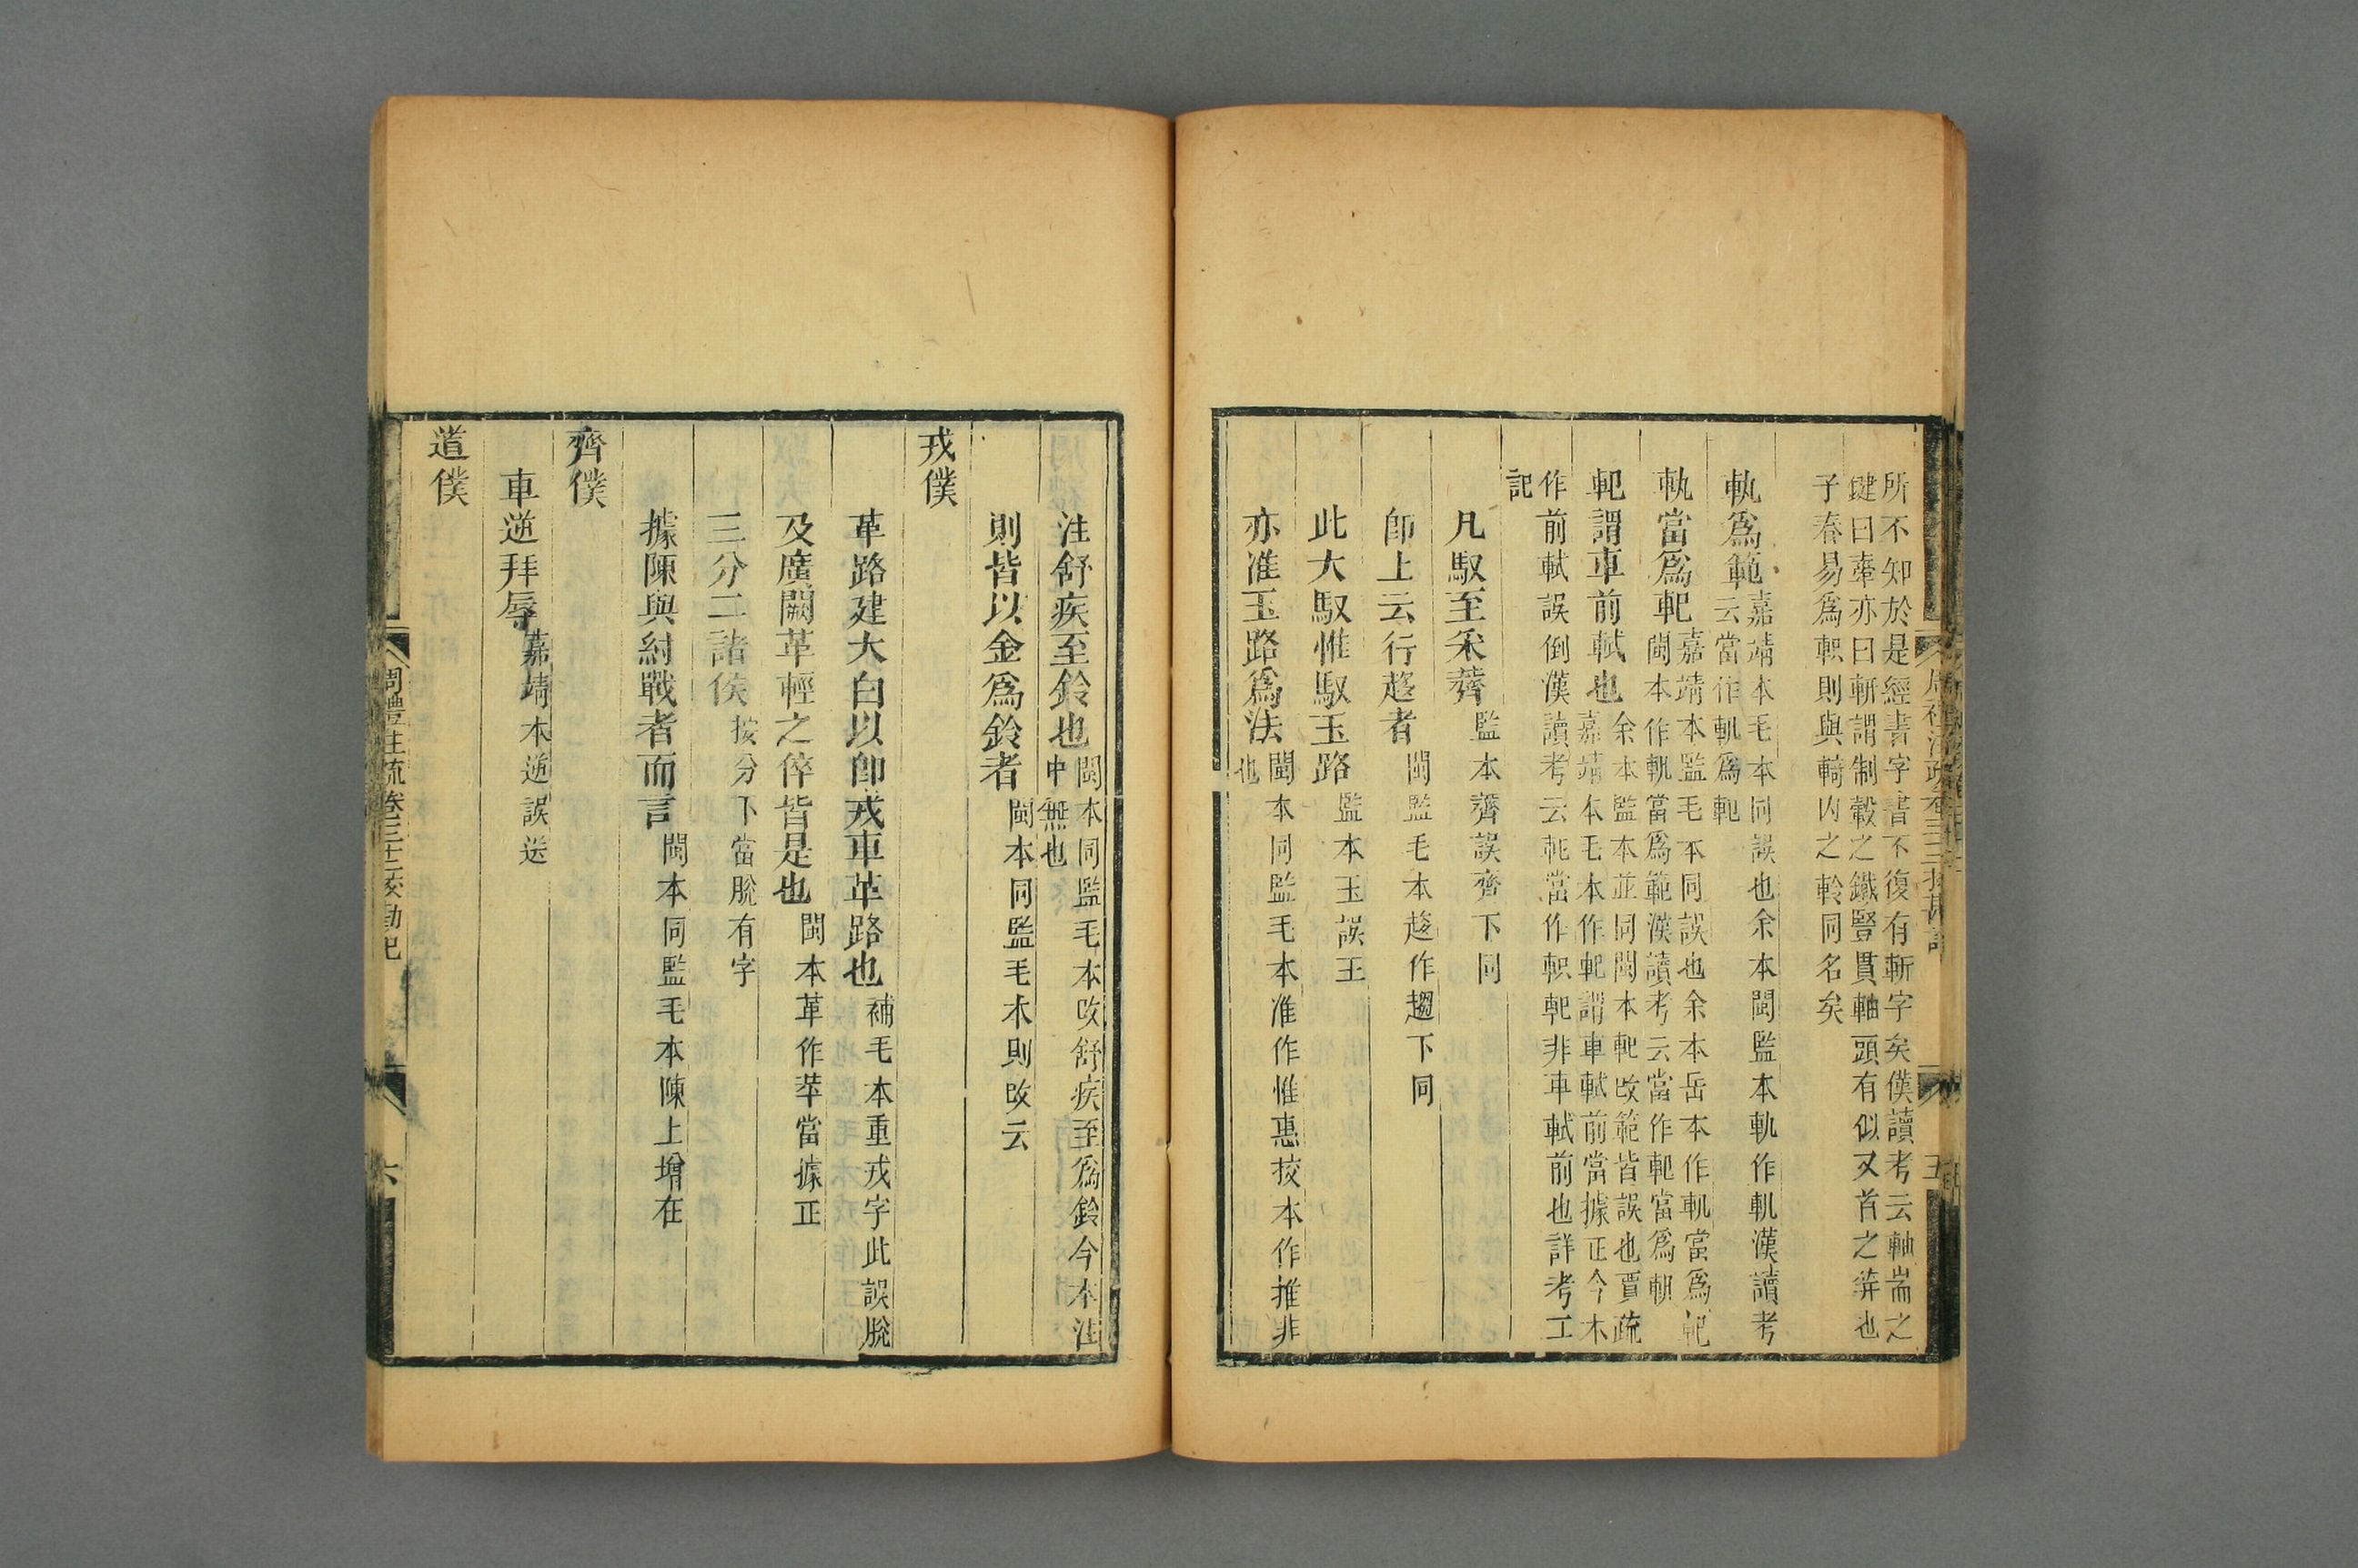 所不知於是經書字書不復有斬字矣漢讀考云軸耑之
鍵曰舝亦曰斬謂制轂之鐵豎貫軸頭有似又首之笄也
子春易爲軹則與輢內之軨同名矣
軓爲範
嘉靖本毛本同誤也余本閩監本軌作軓漢讀考
云當作軓爲軛
軓當爲軛
嘉靖本監毛本同誤也余本岳本作軓當爲軛
閩本作軓當爲範漢讀考云當作軛當爲軓
軛謂車前軾也
余本監本並同閩本軛改範皆誤也賈疏
嘉靖本毛本作軛謂車軾前當據正今本
作前軾誤倒漢讀考云軛當作軹軛非車軾前也詳考工
記
凡馭至采薺
監本薺誤齊下同
卽上云行趍者
閩監毛本趍作趨下同
此大馭惟馭玉路
監本玉誤王
亦准玉路爲法
閩本同監毛本准作惟惠挍本作推非
也
注舒疾至鈴也
閩本同監毛本改舒疾至爲鈴今本注
中無也
則皆以金爲鈴者
閩本同監毛本則改云
戎僕
革路建大白以卽戎車革路也
補毛本重戎字此誤脫
及廣闕革輕之倅皆是也
閩本革作苹當據正
三分二諸侯
按分下當脫有字
據陳與紂戰者而言
閩本同監毛本陳上增在
齊僕
車逆拜辱
嘉靖本逆誤送
道僕
周禮注疏卷三十二挍勘記
六